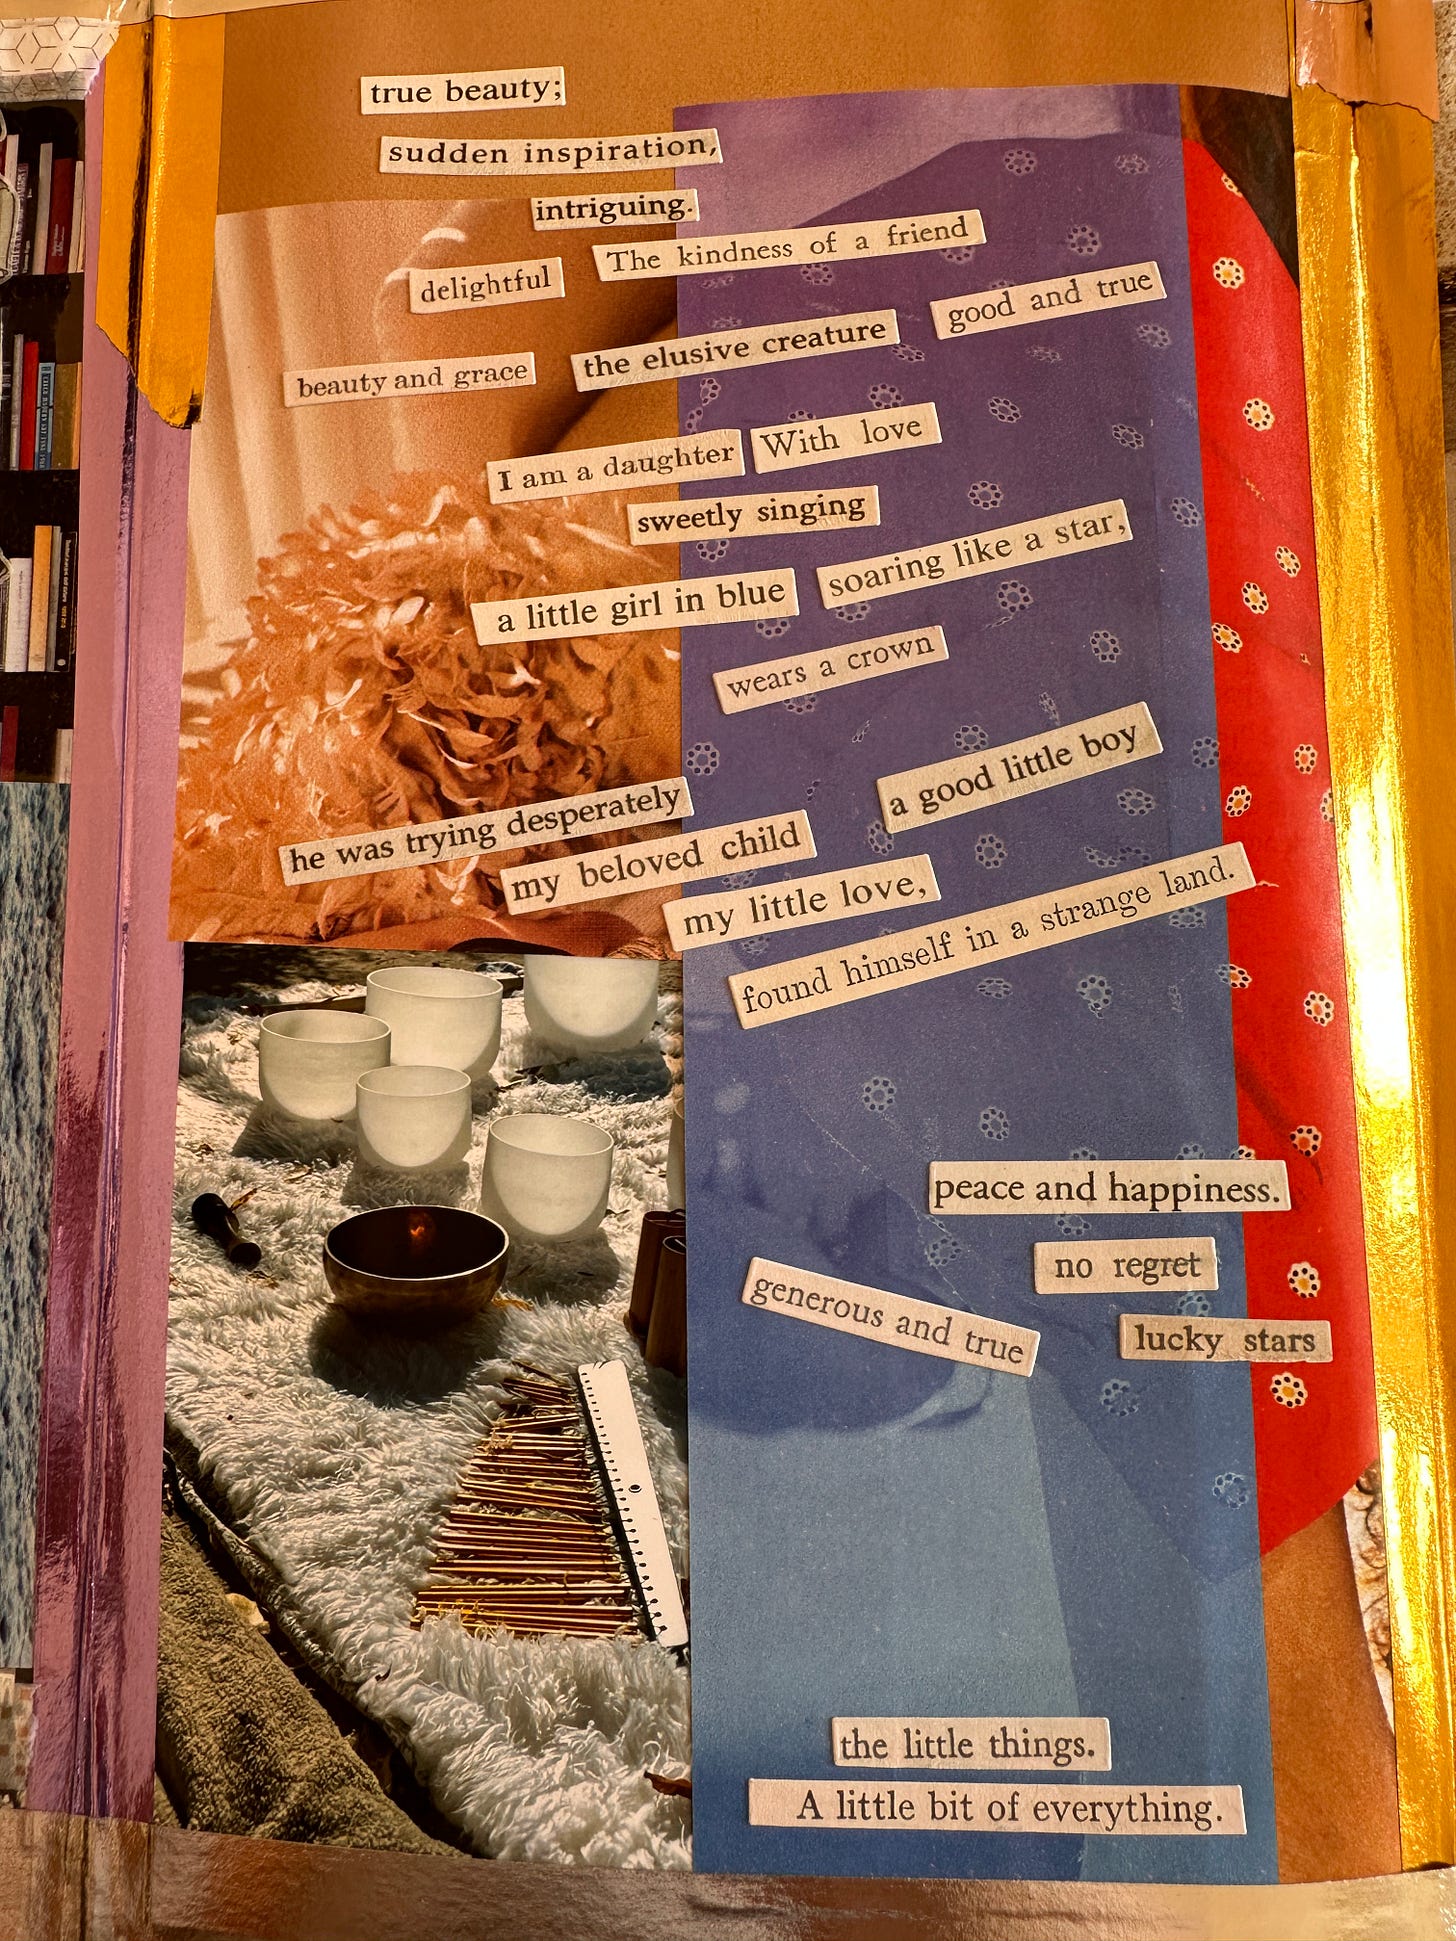 true beauty;
sudden inspiration,
intriguing.
The kindness of a friend
delightful
good and true
the elusive creature
beauty and grace
I am a daughter
With love
sweetly singing
soaring like a star,
a little girl in blue
wears a crown
a good little boy
he was trying desperately
my beloved child
my little love,
found himself in a strange land.
peace and happiness.
no regret
generous and true
lucky stars
the little things.
A little bit of everything.